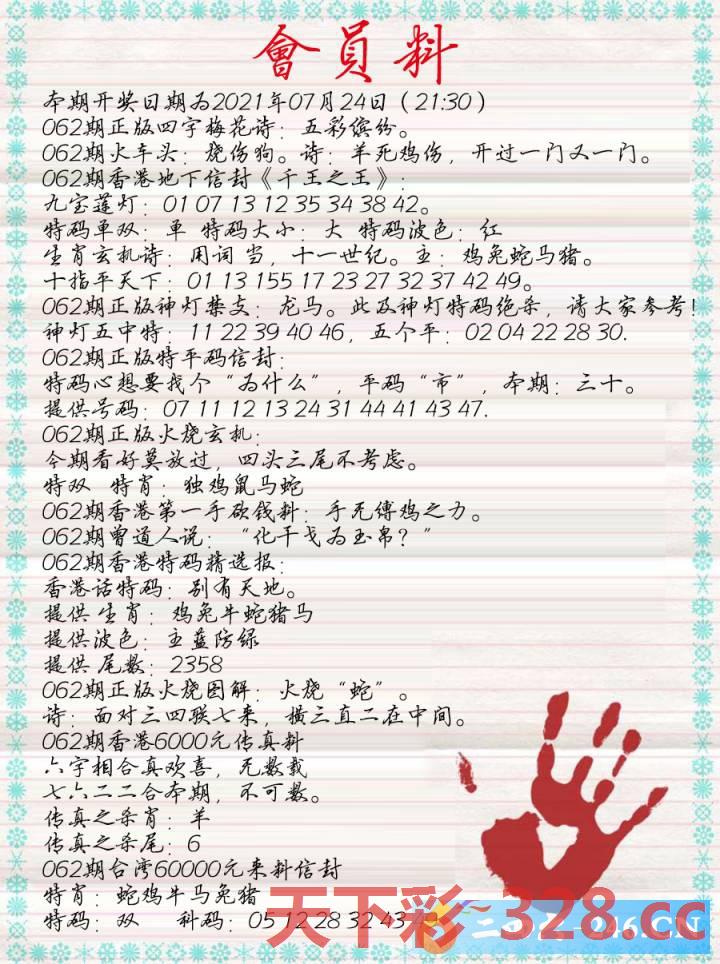 會員料
本期开奖日期为2021年07月24日（21:30）
062期正版四字梅花诗：五彩缤纷。
062期火车头：烧伤狗。诗：羊死鸡伤，开过一门又一门。
062期香港地下信封《千王之王》：
九宝莲灯：01 07 13 12 35 34 38 42。
特码单双：单 特码大小：大 特码波色：红
生肖玄机诗：用词 当，十一世纪。主：鸡兔蛇马猪。
十指平天下：01 13 155 17 23 27 32 37 42 49。
062期正版神灯禁支：龙马。此及神灯特码绝杀，请大家参考！
神灯五中特：11 22 39 40 46，五个平：02 04 22 28 30.
062期正版特平码信封：
特码心想要找个“为什么”，平码“市”，本期：三十。
提供号码：07 11 12 13 24 31 44 41 43 47.
062期正版火烧玄机：
今期看好莫放过，四头三尾不考虑。
特双 特肖：独鸡鼠马蛇
062期香港第一手砍钱料：手无缚鸡之力。
062期曾道人说：“化干戈为玉帛？”
062期香港特码精选报：
香港话特码：别有天地。
提供 生肖：鸡兔牛蛇猪马
提供波色：主蓝防绿
提供 尾数：2358
062期正版火烧图解：火烧“蛇”。
诗：面对三四联七来，横三直二在中间。
062期香港6000元传真料
六字相合真欢喜，无数载
七六二二合本期，不可数。
传真之杀肖：羊
传真之杀尾：6
062期台湾60000元来料信封
特肖：蛇鸡牛马兔猪
特码：双 科码：05 12 28 32 43
天下彩-328.cc
246.CN